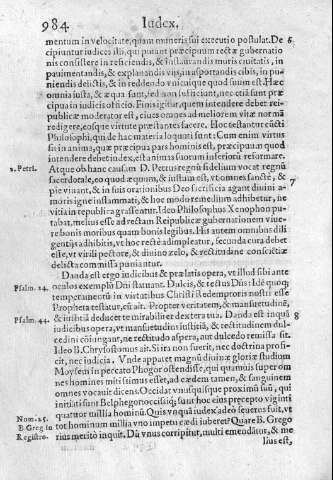 984 Iudex.
mentum in velocitate, quam muneris sui executio postulat. De 6
cipiuntur iudices illi, qui putant præcipuum rectæ gubernatio
nis consistere in reficiendis, & instaurandis muris ciuitatis, in
pauimentandis, & explanandis viis, in asportandis cibis, in pu
niendis delictis, & in reddendo vnicuique quod suum est. Hæc
omnia iusta, & æqua sunt, sed non sufficiunt, nec etiã sunt præ
cipua in iudicis officio. Finis igitur, quem intendere debet rei-
publicæ moderator est, ciues omnes ad meliorem vitæ normã
redigere, eosque virtute præstantes facere. Hoc testantur cuncti
Philosophi, qui de hac materia loquuti sunt: Cum enim virtus
sit in anima, quæ præcipua pars hominis est, præcipuum quod
intendere debet index, est anima suorum inferiorũ reformare.
2. Petri. Atque ob hanc causam D. Petrus regni fidelium vocat regnũ
sacerdotale, eo quod æquum, & iustum est, vt omnes sanctè, &
piè viuant, & in suis orationibus Deo sacrificia agant diuini a- 7
moris igne inflammati, & hoc modo remedium adhibetur, ne
vitia in republica grassentur. Ideo Philosophus Xenophon pu-
tabat, melius esse ad rectam Reipublicæ gubernationem viue-
re bonis moribus quam bonis legibus. His autem omnibus dili
gentiis adhibitis, vt hoc rectè adimpleatur, secunda cura debet
esse, vt virili pectore, & diuino zelo, & rectitudine conscientiæ
delicta commissa puniantur.
Danda est ergo iudicibus & prælatis opera, vt illud sibi ante
Psalm. 24. oculos exempli Dñi statuant. Dulcis, & rectus Dñs: Idẽ quoq;
temperamentũ in virtutibus Christi Redemptoris nostri esse
Propheta testatur, cũ ait. Propter veritatem, & mansuetudinẽ,
Psalm. 44. & iustitiã deducet te mirabiliter dextera tua. Danda est inquã 8
iudicibus opera, vt mansuetudini iustitiã, & rectitudinem dul-
cedini cõiungant, ne rectitudo aspera, aut dulcedo remissa sit.
Ideo B. Chrysostomus ait. Si ira non fuerit, nec doctrina profi-
cit, nec iudicia. Vnde apparet magnũ diuinæ gloriæ studium
Moysen in percato Phogor ostendisse, qui quamuis super om
nes homines mitis simus esset, ad cædem tamen, & sanguinem
omnes vocauit dicens. Occidat vnusquisque proximũ suũ, qui
initiati sunt Belphegor: occisiq; sunt hoc eius præcepto viginti
Nom. 25. quatuor millia hominũ. Quis vnquã iudex adeo seuerus fuit, vt
B Greg in tot hominum millia vno impetu cædi iuberet? Quare B. Grego
Registro. rius meritò inquit. Dũ vnus corripitur, multi emendãtur, & me
lius est,